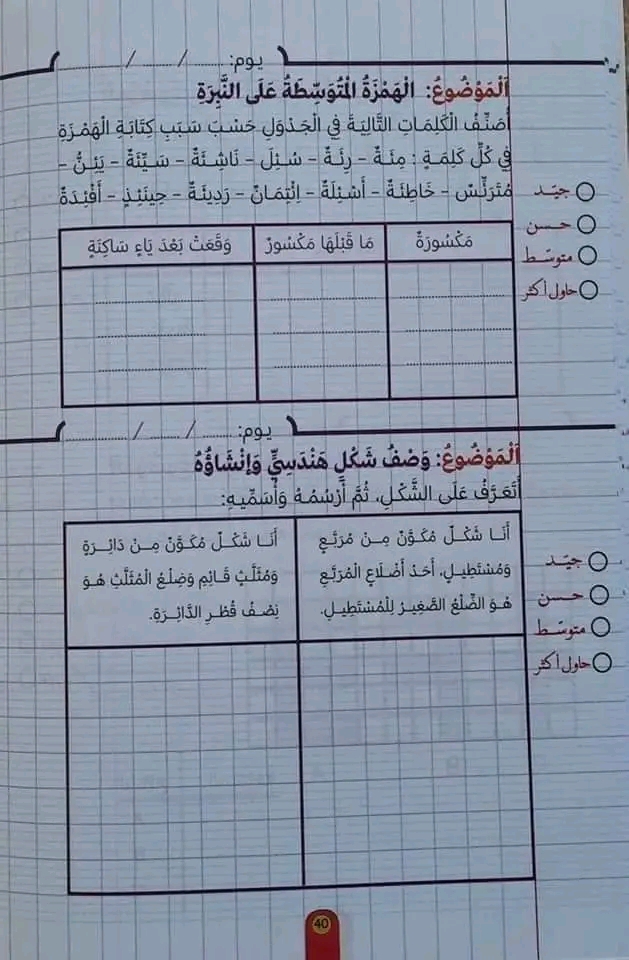 يوم: ........ / ........ / ................
اَلْمَوْضُوعُ: الْهَمْزَةُ الْمُتَوَسِّطَةُ عَلَى النَّبِرَةِ
أُصَنِّفُ الْكَلِمَاتِ التَّالِيَةَ فِي الْجَدْوَلِ حَسْبَ سَبَبِ كِتَابَةِ الْهَمْزَةِ
فِي كُلِّ كَلِمَةٍ : مِئَةٌ – رِئَةٌ – سُئِلَ – نَاشِئَةٌ – سَيِّئَةٌ – يَئِنُّ –
مُتَرَئِّسٌ – خَاطِئَةٌ – أَسْئِلَةٌ – اِئْتِمَانٌ – رَدِيئَةٌ – حِينَئِذٍ – أَفْئِدَةٌ
جيّد
حسن
متوسّط
حاول أكثر
مَكْسُورَةٌ
مَا قَبْلَهَا مَكْسُورٌ
وَقَعَتْ بَعْدَ يَاءٍ سَاكِنَةٍ
يوم: ........ / ........ / ................
اَلْمَوْضُوعُ: وَصْفُ شَكْلٍ هَنْدَسِيٍّ وَإِنْشَاؤُهُ
أَتَعَرَّفُ عَلَى الشَّكْلِ، ثُمَّ أَرْسُمُهُ وَأُسَمِّيهِ:
أَنَا شَكْلٌ مُكَوَّنٌ مِنْ مُرَبَّعٍ
وَمُسْتَطِيلٍ، أَحَدُ أَضْلَاعِ الْمُرَبَّعِ
هُوَ الضِّلْعُ الصَّغِيرُ لِلْمُسْتَطِيلِ.
أَنَا شَكْلٌ مُكَوَّنٌ مِنْ دَائِرَةٍ
وَمُثَلَّثٍ قَائِمٍ وَضِلْعُ الْمُثَلَّثِ هُوَ
نِصْفُ قُطْرِ الدَّائِرَةِ.
جيّد
حسن
متوسّط
حاول أكثر
40